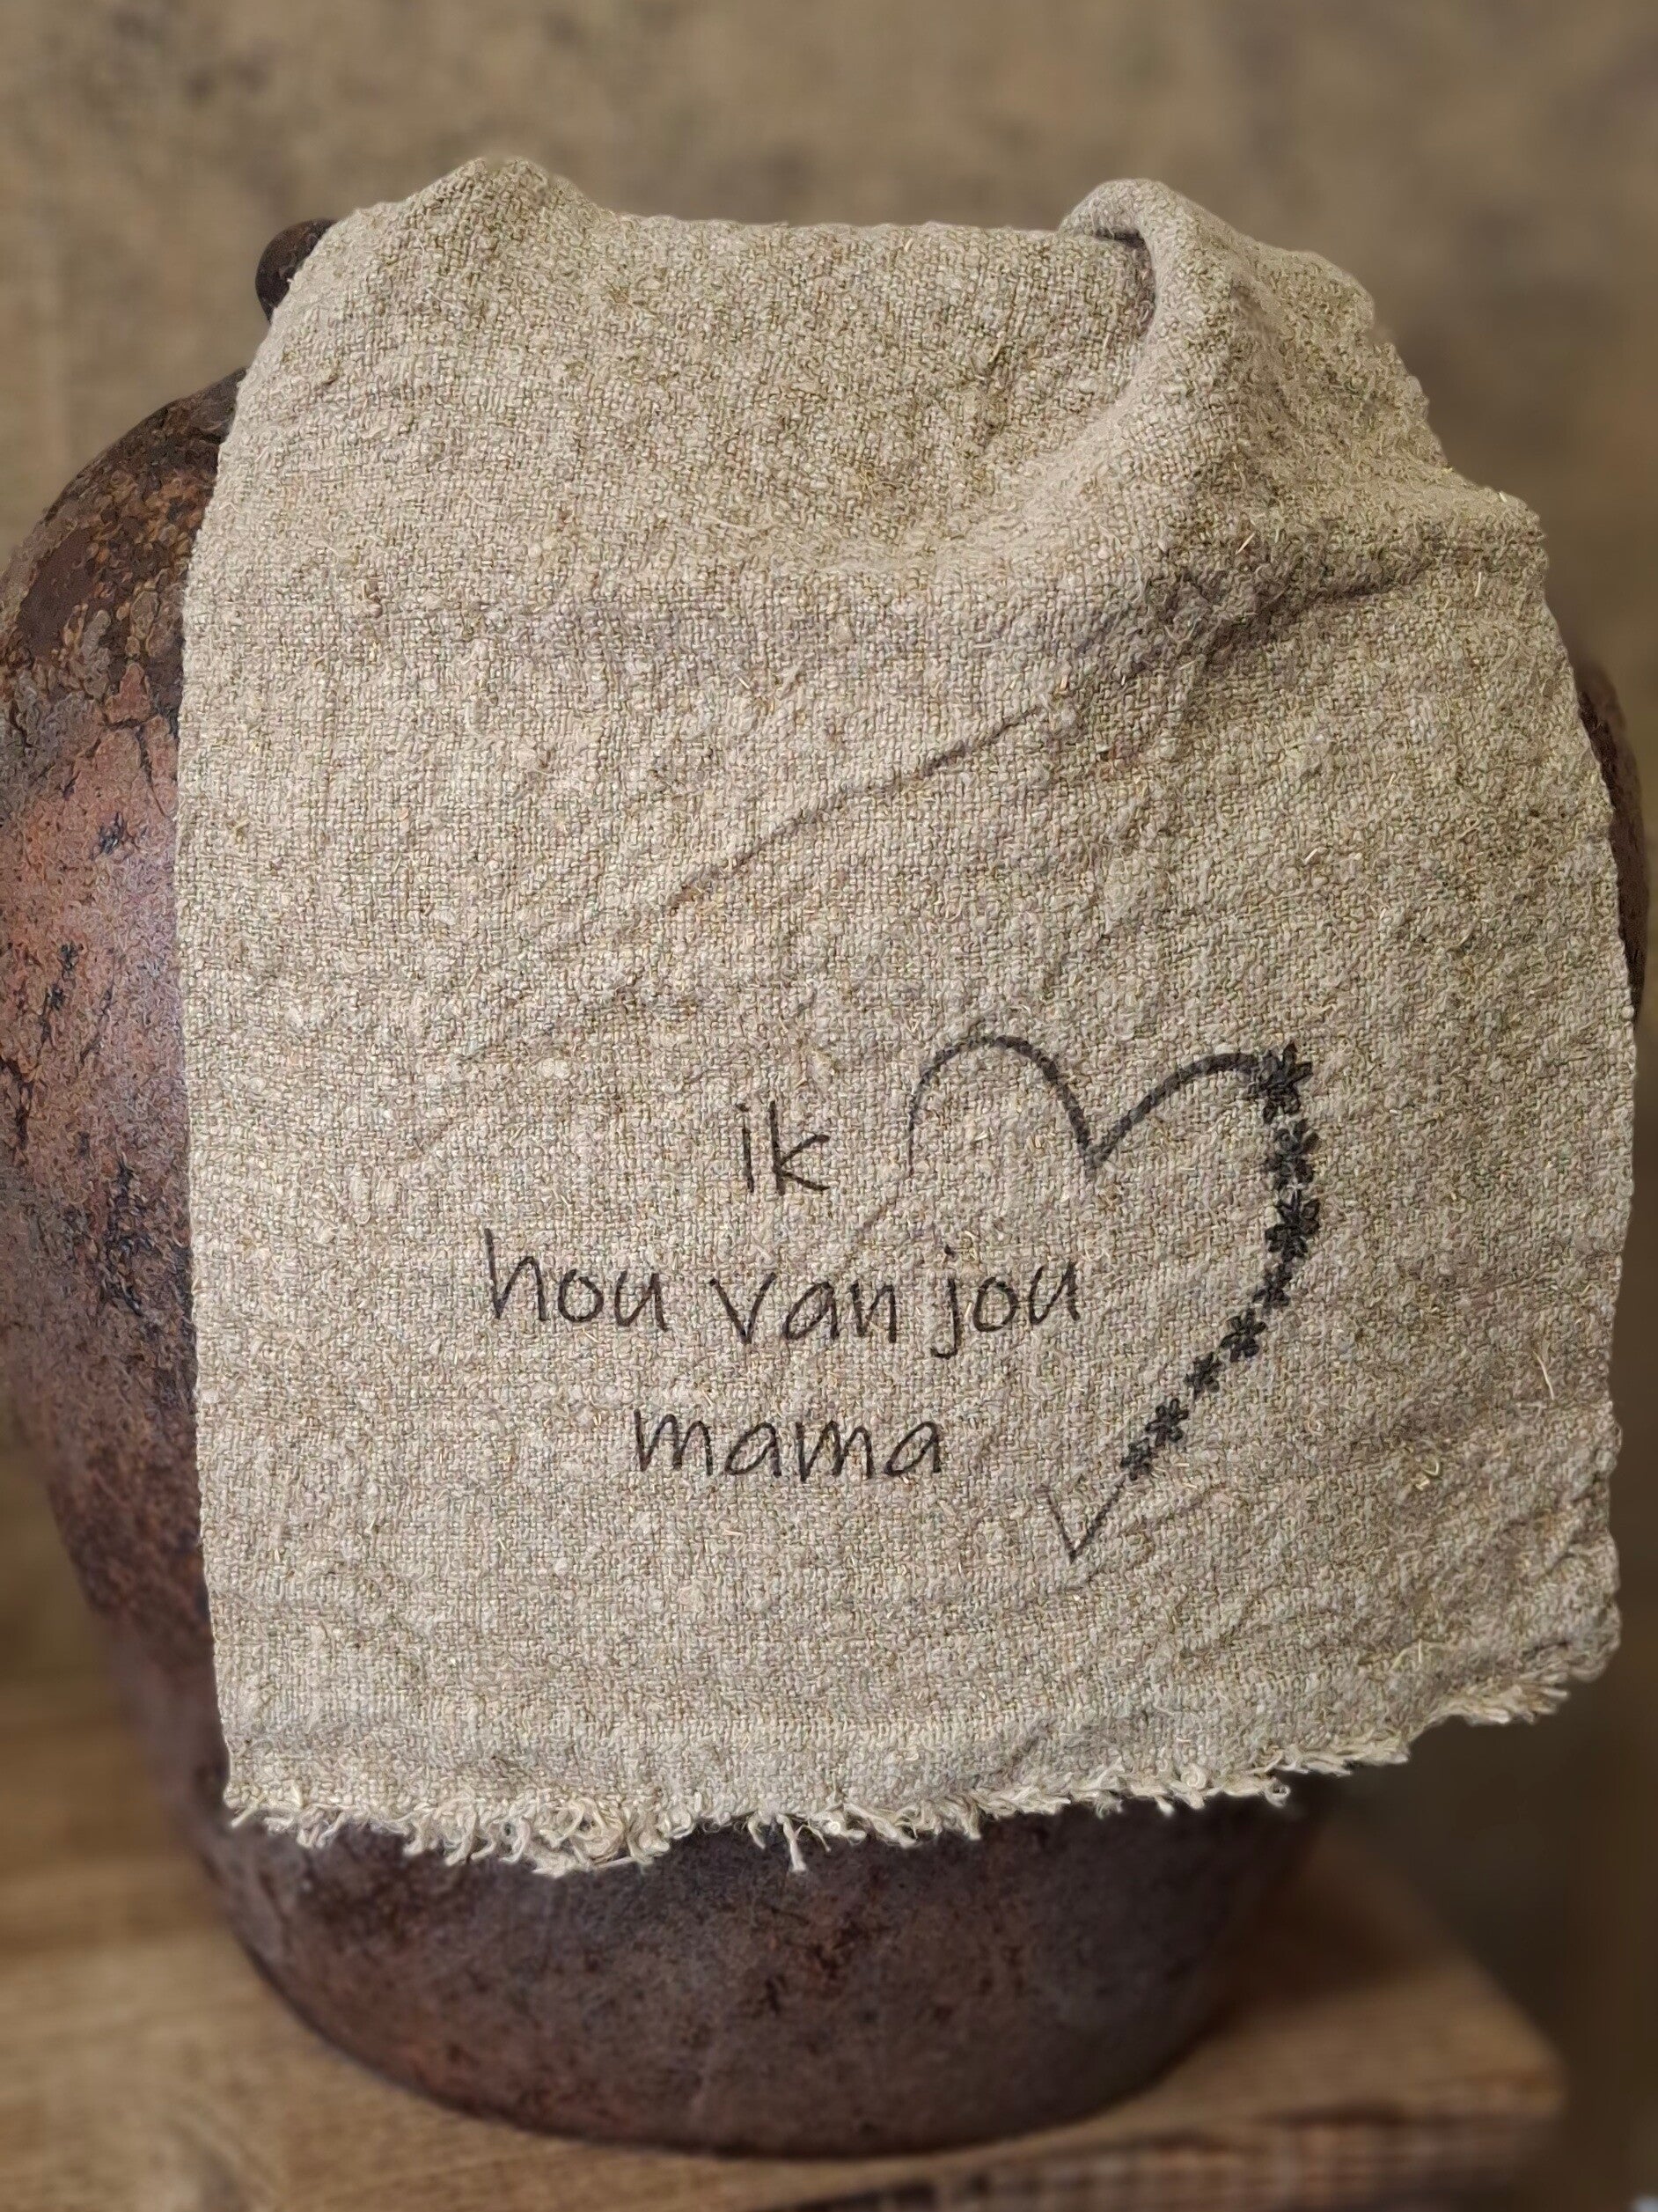 ik
hou van jou
mama